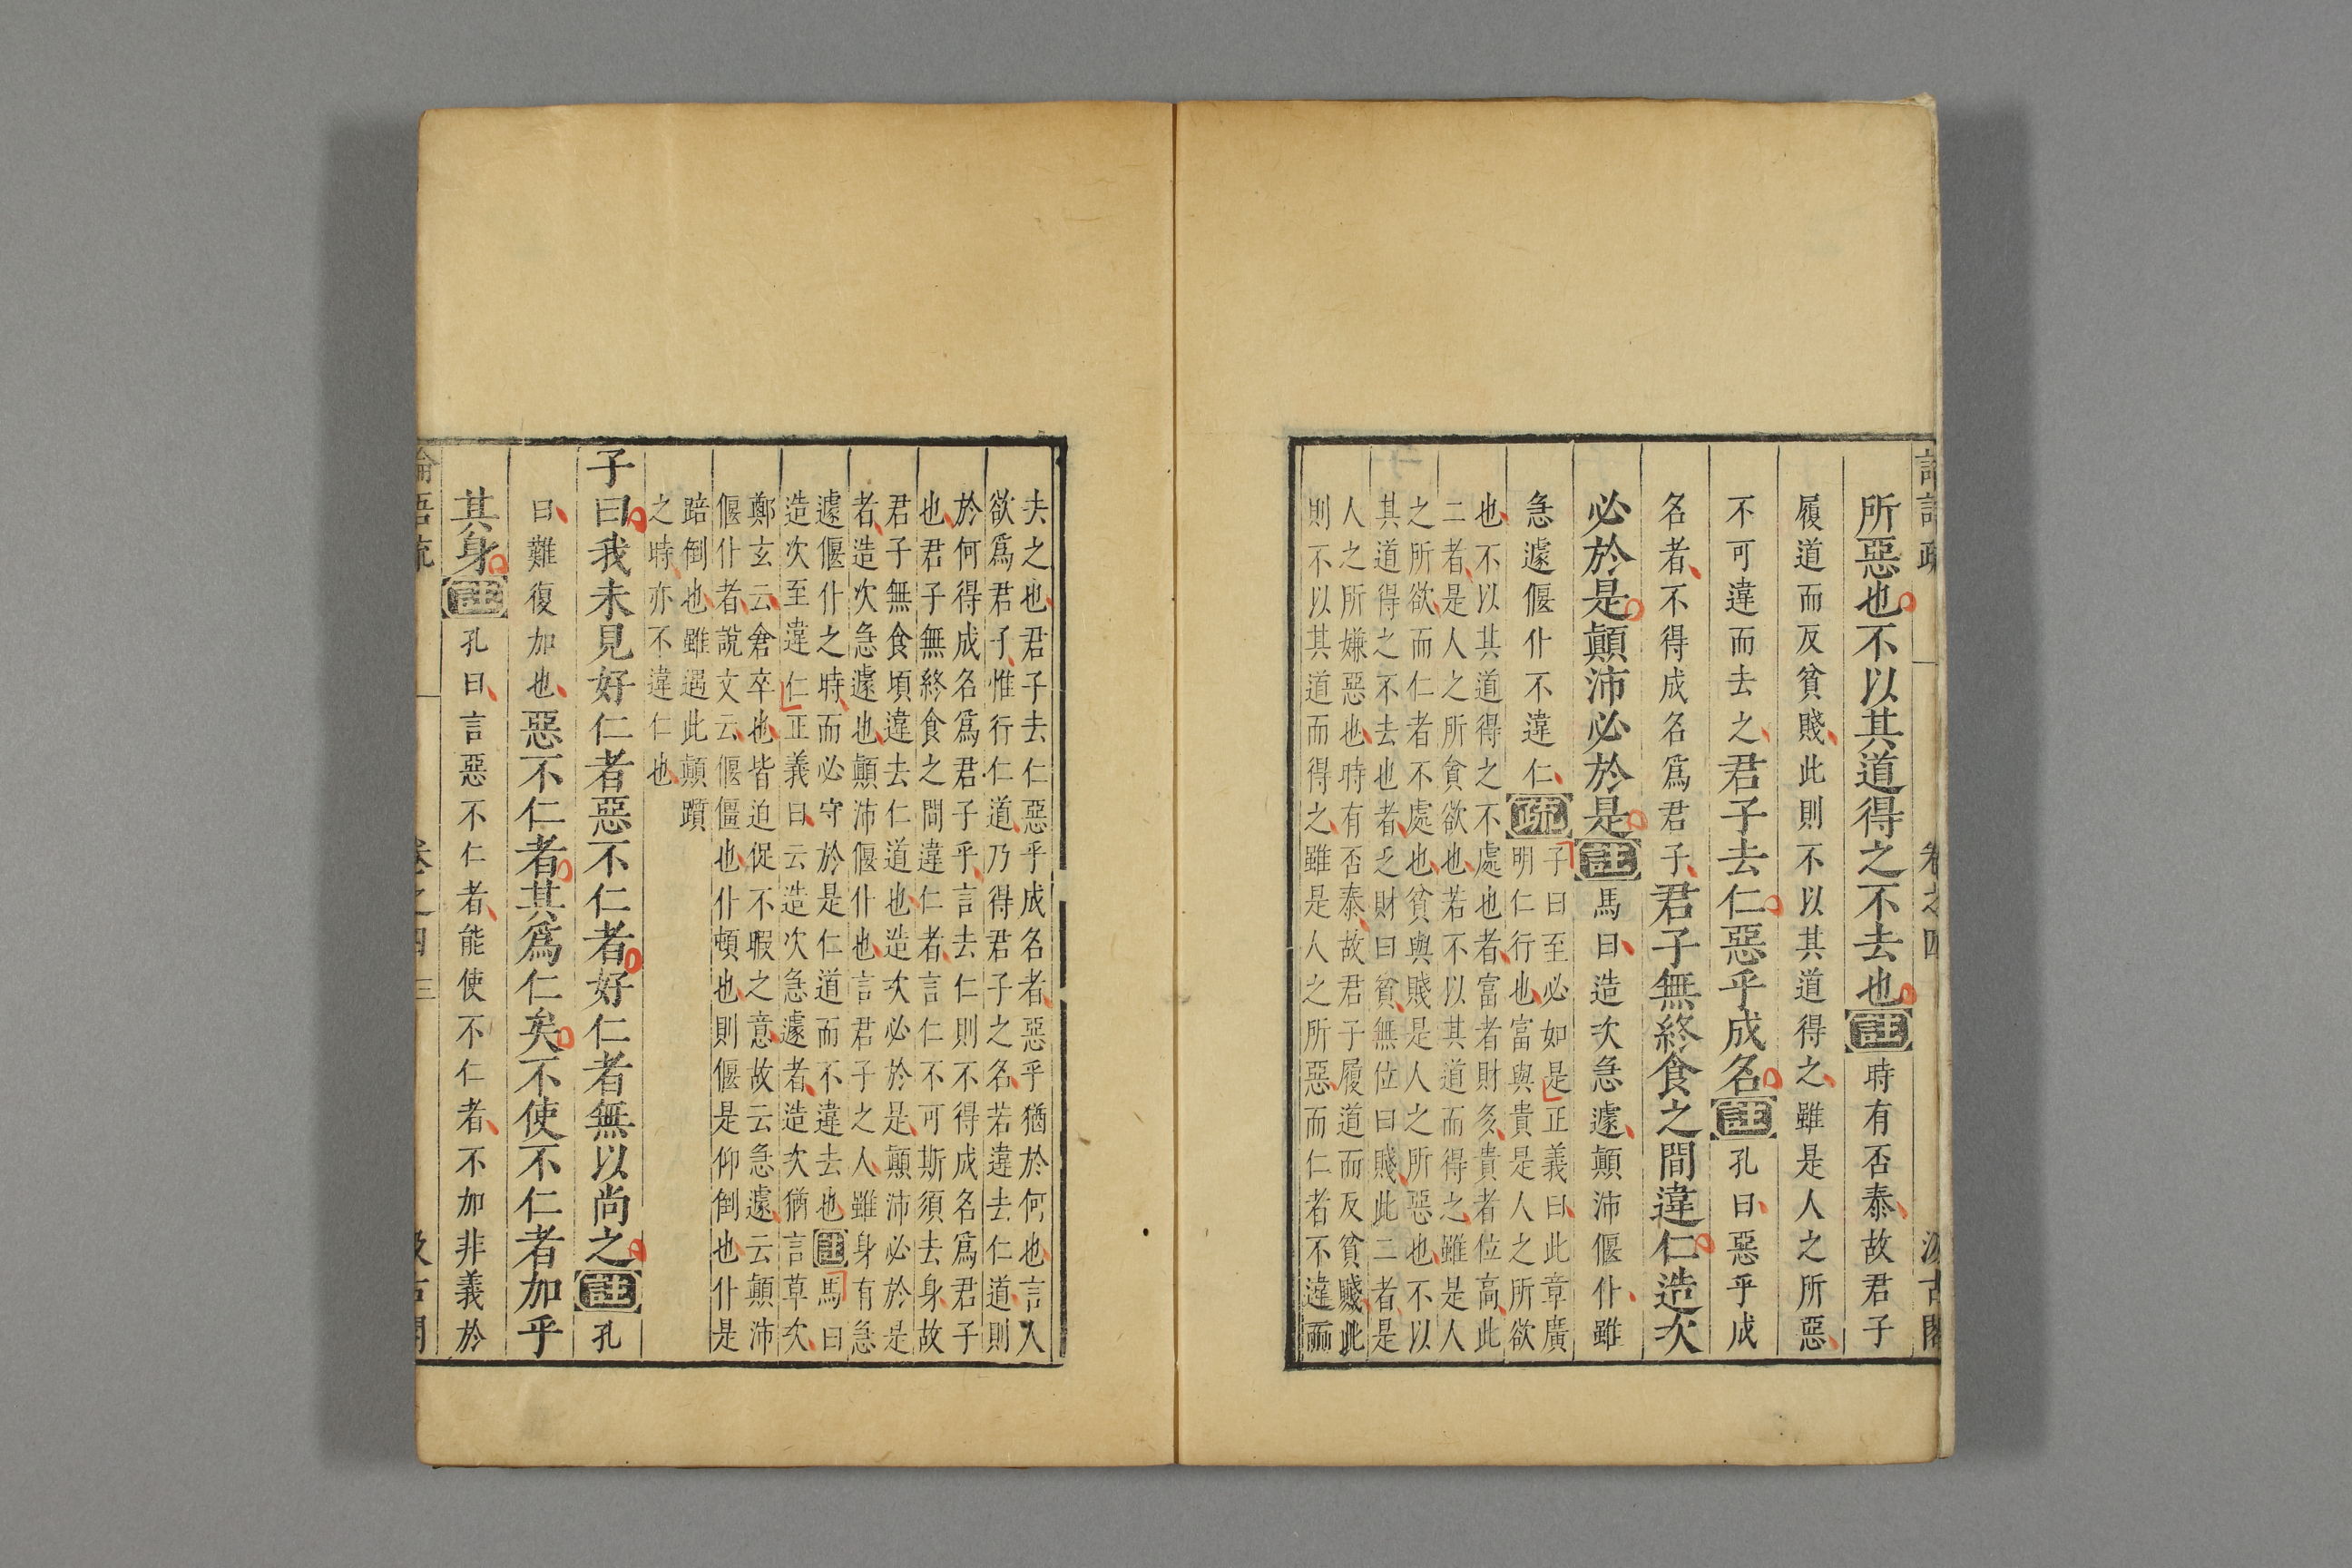 所惡也不以其道得之不去也註時有否泰故君子
履道而反貧賤此則不以其道得之雖是人之所惡
不可違而去之君子去仁惡乎成名註孔曰惡乎成
名者不得成名爲君子君子無終食之間違仁造次
必於是顚沛必於是註馬曰造次急遽顚沛偃仆雖
急遽偃仆不違仁疏子曰至必如是正義曰此章廣
明仁行也富與貴是人之所欲
也不以其道得之不處也者富者財多貴者位高此
二者是人之所貪欲也若不以其道而得之雖是人
之所欲而仁者不處也貧與賤是人之所惡也不以
其道得之不去也者乏財曰貧無位曰賤此二者是
人之所嫌惡也時有否泰故君子履道而反貧賤此
則不以其道而得之雖是人之所惡而仁者不違而
夫之也君子去仁惡乎成名者惡乎猶於何也言人
欲爲君子惟行仁道乃得君子之名若違去仁道則
於何得成名爲君子乎言去仁則不得成名爲君子
也君子無終食之間違仁者言仁不可斯須去身故
君子無食頃違去仁道也造次必於是顚沛必於是
者造次急遽也顚沛偃仆也言君子之人雖身有急
遽偃仆之時而必守於是仁道而不違去也註馬曰
造次至違仁正義曰云造次急遽者造次猶言草次
鄭玄云倉卒也皆迫促不暇之意故云急遽云顚沛
偃仆者說文云偃僵也仆頓也則偃是仰倒也仆是
踣倒也雖遇此顚躓
之時亦不違仁也
子曰我未見好仁者惡不仁者好仁者無以尚之註孔
曰難復加也惡不仁者其爲仁矣不使不仁者加乎
其身註孔曰言惡不仁者能使不仁者不加非義於